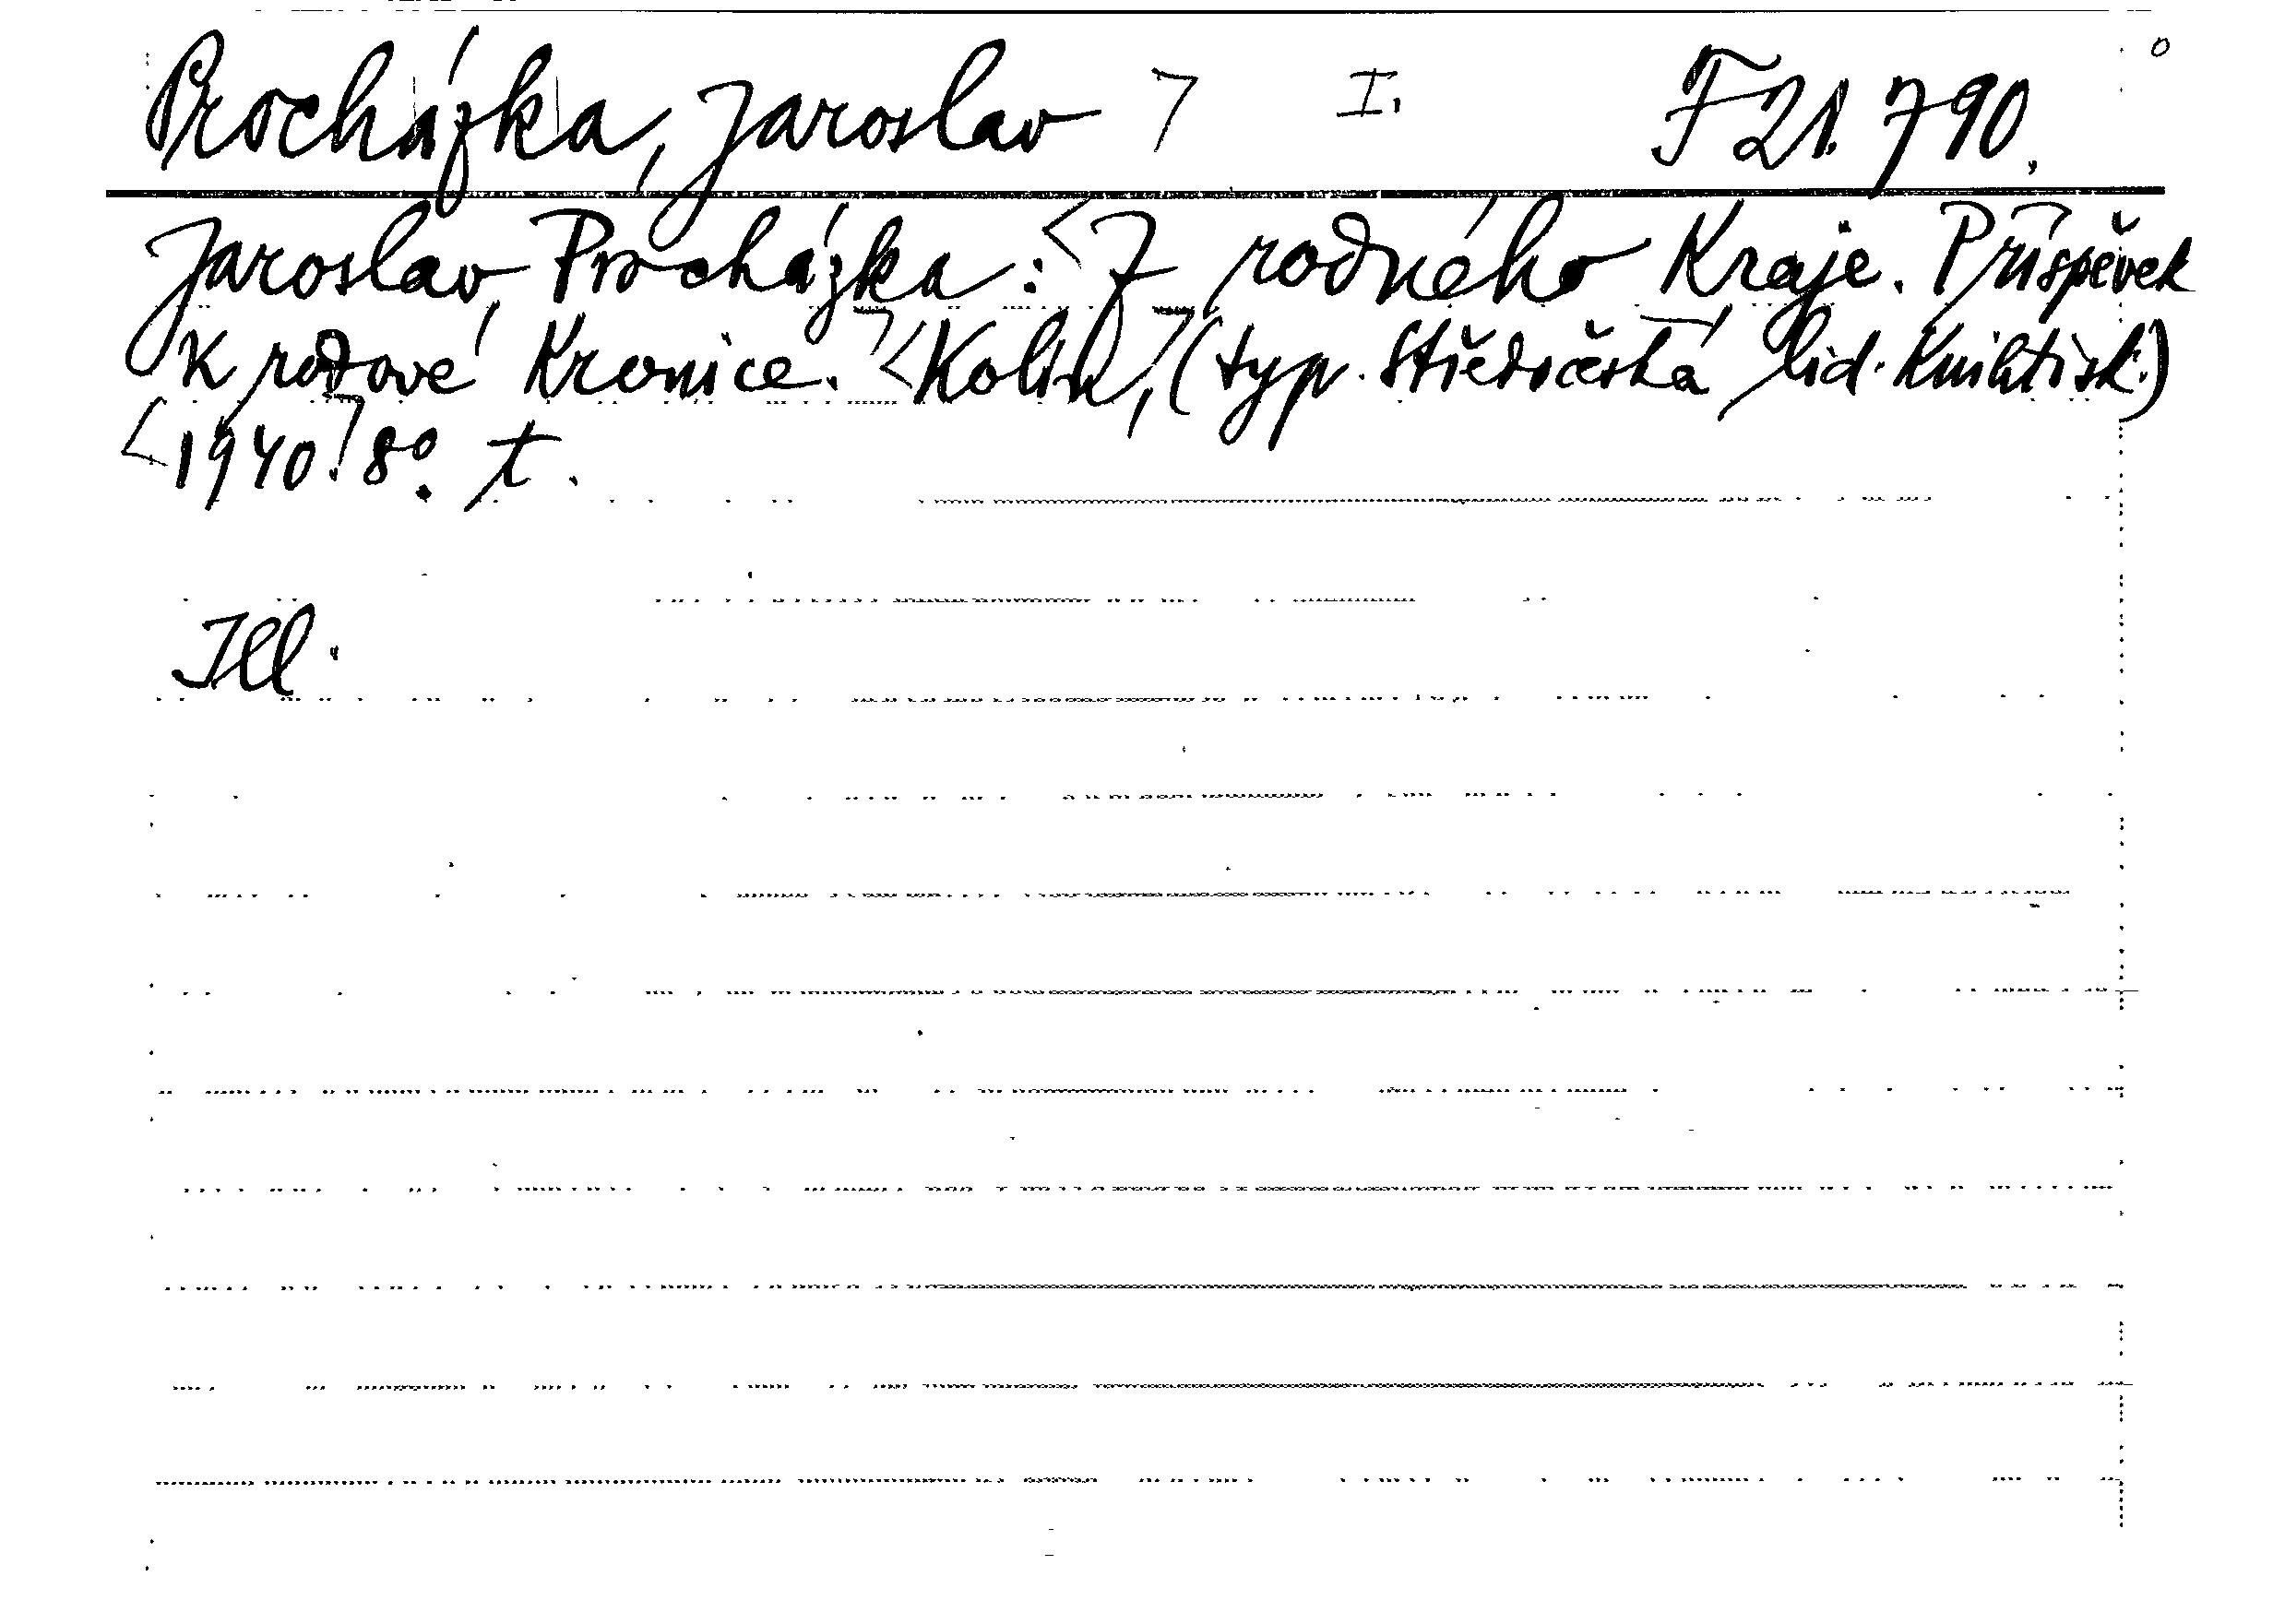 Procházka, Jaroslav ⌉ I. F 21.790.
Jaroslav Procházka: <Z rodného Kraje. Příspěvek
k rodové Kronice.⌉ <Kolín,⌉ (typ. Středočeská lid. Knihtisk.)
<1940.⌉ 8°. t.
Ill.